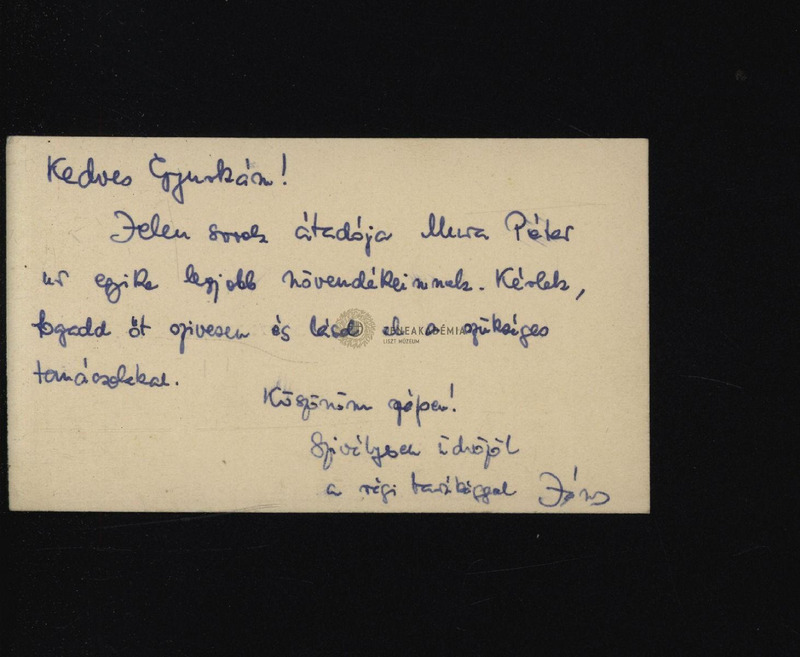 Kedves Gyurkám!
Jelen sorok átadója Mura Péter
úr egyike legjobb növendékeimnek. Kérlek,
fogadd őt szivesen és lásd el a szükséges
tanácsokkal.
ZENEAKADÉMIA
LISZT MÚZEUM
Köszönöm szépen!
Szivélyesen üdvözöl
a régi barátsággal János